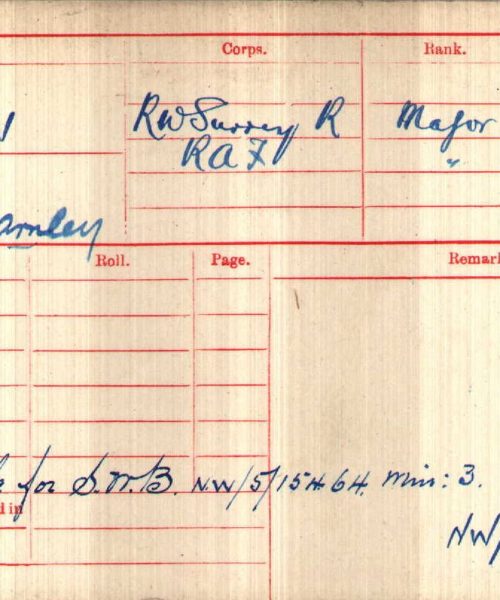 Corps. Rank.
R W Surrey R Major
R A F "
Roll. Page. Remar
for S.W.B. NW/5/15464. Min: 3.
d in
NW/